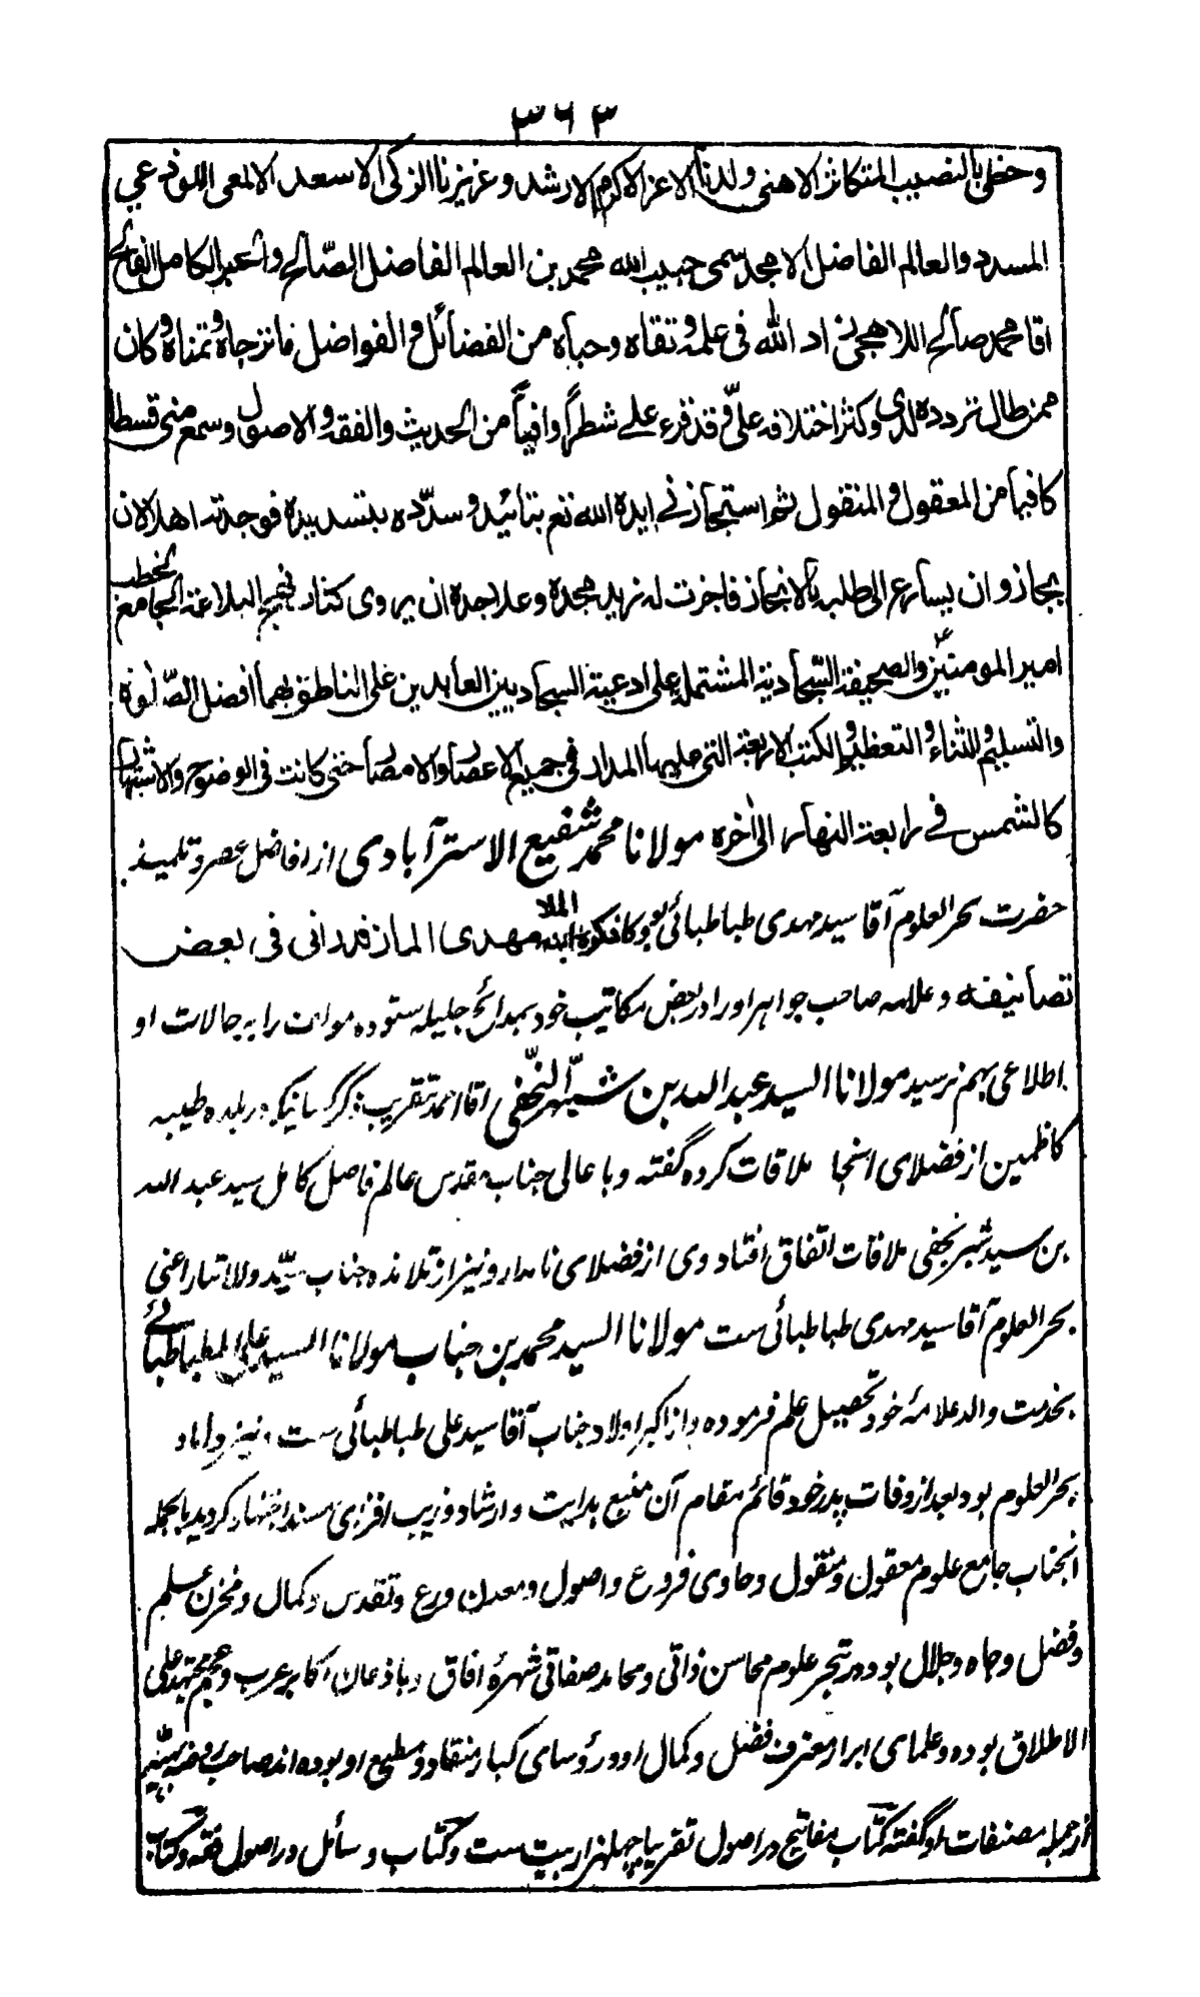 ٣٦٣
وحظی بالنصیب المتکاثر الاهنی ولدنا الاعز الاکرم الارشد وعزیزنا الزکی الاسعد الالمعی اللوذعی
المسدد والعالم الفاضل الامجد سمی حبیب الله محمد بن العالم الفاضل الصّالح والحبر الکامل الفالح
اقا محمد صالح اللاهجی زاد الله فی علمه وتقاه وحباه من الفضائل والفواضل ما ترجاه وتمناه وکان
ممن طال تردده لدی وکثر اختلافه علیّ وقد قرء علی شطراً وافیاً من الحدیث والفقه والاصول وسمع منی قسطا
کافیا من المعقول والمنقول ثم استجازنی ایده الله تع بتائیده وسدّده بتسدیده فوجدته اهلا لان
یجاز وان یسارع الی طلبه بالانجاز فاجزت له زید مجده وعلا جده ان یروی کتاب نهج البلاغة الجامع لخطب
امیر المومنین ع والصحیفة السّجادیة المشتملة علی ادعیة السجاد زین العابدین علی الناطق بهما افضل الصّلوة
والتسلیم والثناء والتعظیم والکتب الاربعة التی علیها المدار فی جمیع الاعصار والامصار حتی کانت فی الوضوح والاشتهار
کالشمس فی رابعة النهار الی اخره مولانا محمد شفیع الاسترآبادی از افاضل عصر وتلمیذ
حضرت بحر العلوم آقا سید مهدی طباطبائی بود کما ذکره ابنه الملا مهدی المازندرانی فی بعض
تصانیفه وعلامه صاحب جواهر اورا در بعض مکاتیب خود بمدائح جلیله ستوده مولف را به حالات او
اطلاعی بهم نرسید مولانا السید عبد الله بن شبّر النّجفی اقا احمد تقریب ذکر کسانیکه در بلده طیبه
کاظمین از فضلای انجا ملاقات کرده گفته وبا عالی جناب مقدس عالم فاضل کامل سید عبد الله
بن سید شبر نجفی ملاقات اتفاق افتاد وی از فضلای نامدار ونیز از تلامذه جناب سیّد والا تبار اعنی
بحر العلوم آقا سید مهدی طباطبائی ست مولانا السید محمد بن جناب مولانا السید علی الطباطبائی
بخدمت والد علامهٔ خود تحصیل علم فرموده واز اکبر اولاد جناب آقا سید علی طباطبائی ست ونیز داماد
بحر العلوم بود بعد از وفات پدر خود قائم مقام آن منبع هدایت وارشاد وزیب افزای مسند اجتهاد گردید بالجمله
انجناب جامع علوم معقول ومنقول وحاوی فروع واصول ومعدن ورع وتقدس وکمال ومخزن علم
وفضل وجاه وجلال بود در تبحر علوم محاسن ذاتی ومحامد صفاتی شهرهٔ افاق وباذعان اکابر عرب وعجم مجتهد علی
الاطلاق بوده وعلمای ابرار معترف فضل وکمال او ورؤسای کبار منقاد ومطیع او بوده اند صاحب روضه بهیّه
از جمله مصنفات او گفته کتاب مفاتیح در اصول تقریبا چهل هزار بیت ست وکتاب وسائل در اصول فقه وکتاب